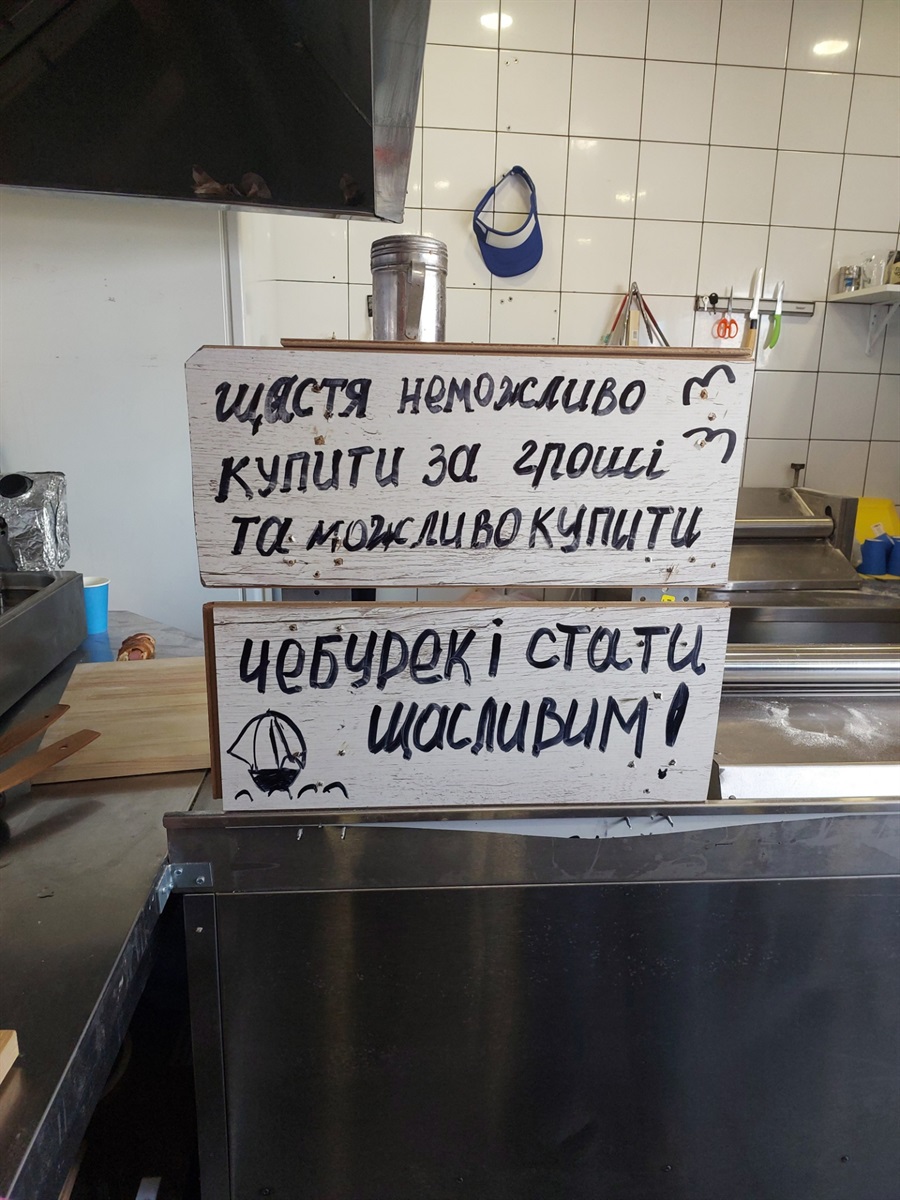 щастя неможливо
купити за гроші
та можливо купити
чебурек і стати
щасливим!